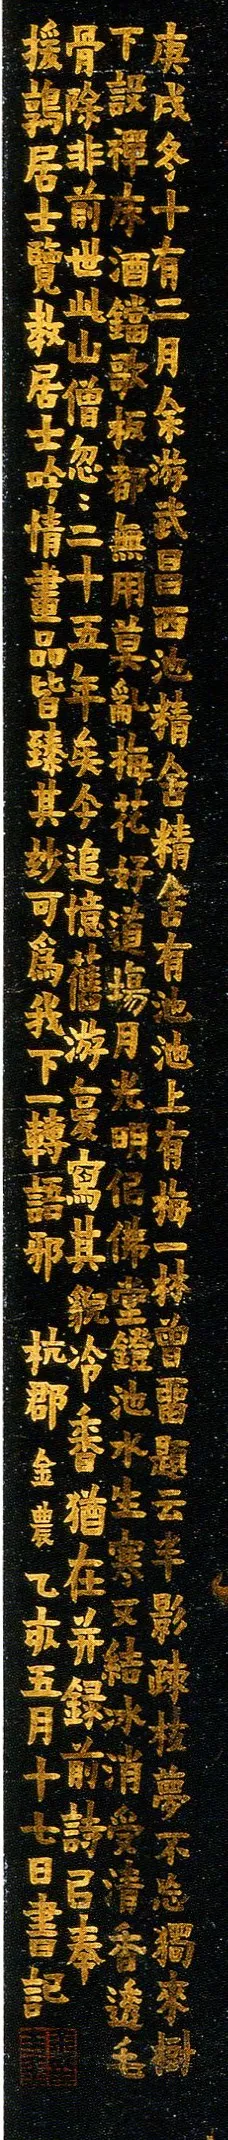 庚戌冬十有二月余游武昌西池精舍精舍有池池上有梅一林曾留題云半影疎枝夢不忘獨來樹
下設禪床酒鐺歌板都無用莫亂梅花好道場月光明侣佛堂鐙池水生寒又結冰消受清香透毛
骨除非前世此山僧忽〻二十五年矣今追憶舊游戞寫其貌冷香猶在并録前詩㠯奉
援鶉居士覽教居士吟情畫品皆臻其妙可為我下一轉語邪 杭郡金農乙亥五月十七日書記